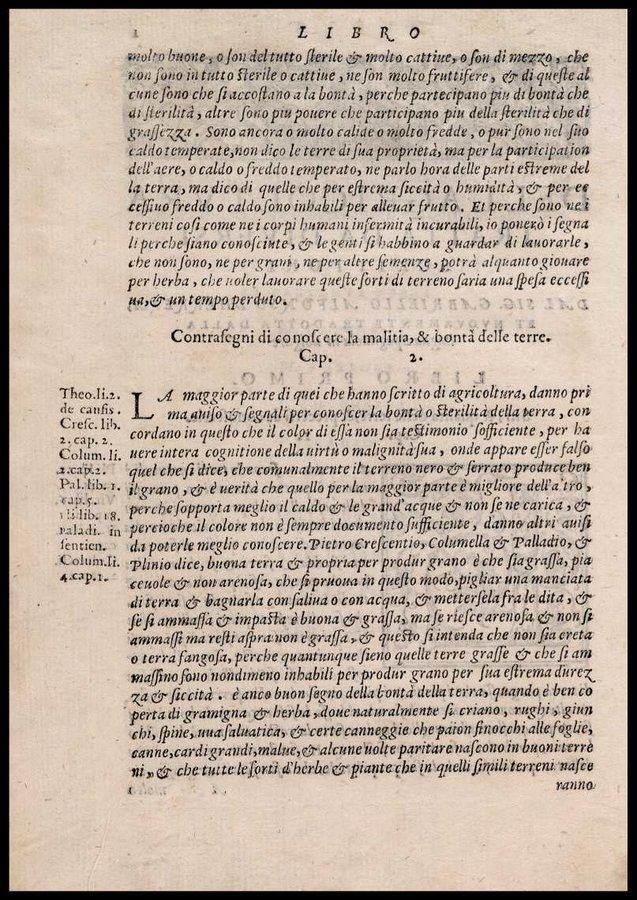 LIBRO
molto buone, o ſon del tutto ſterile & molto cattiue, o ſon di mezzo, che
non ſono in tutto ſterile o cattiue, ne ſon molto fruttifere, & di queſte al
cune ſono che ſi accoſtano a la bontà, perche partecipano piu di bontà che
di ſterilità, altre ſono piu pouere che participano piu della ſterilità che di
graſſezza. Sono ancora o molto calide o molto fredde, o pur ſono nel ſuo
caldo temperate, non dico le terre di ſua proprietà, ma per la participation
dell'aere, o caldo o freddo temperato, ne parlo hora delle parti eſtreme del
la terra, ma dico di quelle che per eſtrema ſiccità o humidità, & per ec
ceſſiuo freddo o caldo ſono inhabili per alleuar frutto. Et perche ſono ne i
terreni coſi come ne i corpi humani infermità incurabili, io ponerò i ſegna
li perche ſiano conoſciute, & le genti ſi habbino a guardar di lauorarle,
che non ſono, ne per grani, ne per altre ſemenze, potrà alquanto giouare
per herba, che uoler lauorare queſte ſorti di terreno ſaria una ſpeſa ecceſſi
ua, & un tempo perduto.
Contraſegni di conoſcere la malitia, & bontà delle terre.
Cap. 2.
Theo. li. 2.
de cauſis.
Creſc. lib.
2. cap. 2.
Colum. li.
2. cap. 2.
Pal. lib. 1.
cap. 5.
li. lib. 18.
paladi. in
ſentien.
Colum. li.
4. cap. 1.
LA maggior parte di quei che hanno ſcritto di agricoltura, danno pri
ma auiſo & ſegnali per conoſcer la bontà o ſterilità della terra, con
cordano in queſto che il color di eſſa non ſia teſtimonio ſofficiente, per ha
uere intera cognitione della uirtù o malignità ſua, onde appare eſſer falſo
quel che ſi dice, che comunalmente il terreno nero & ſerrato produce ben
il grano, & è uerità che quello per la maggior parte è migliore dell'a tro,
perche ſopporta meglio il caldo & le grand'acque & non ſe ne carica, &
percioche il colore non è ſempre documento ſufficiente, danno altri auiſi
da poterle meglio conoſcere. Pietro Creſcentio, Columella & Palladio, &
Plinio dice, buona terra & propria per produr grano è che ſia graſſa, pia
ceuole & non arenoſa, che ſi pruoua in queſto modo, pigliar una manciata
di terra & bagnarla con ſaliua o con acqua, & metterſela fra le dita, &
ſe ſi ammaſſa & impaſta è buona & graſſa, ma ſe rieſce arenoſa & non ſi
ammaſſi ma reſti aſpra non è graſſa, & queſto ſi intenda che non ſia creta
o terra fangoſa, perche quantunque ſieno quelle terre graſſe & che ſi am
maſſino ſono nondimeno inhabili per produr grano per ſua eſtrema durez
za & ſiccità. è anco buon ſegno della bontà della terra, quando è ben co
perta di gramigna & herba, doue naturalmente ſi criano, rughi, giun
chi, ſpine, uua ſaluatica, & certe canneggie che paion finocchi alle foglie,
canne, cardi grandi, malue, & alcune uolte paritare naſcono in buoni terre
ni, & che tutte le ſorti d'herbe & piante che in quelli ſimili terreni naſce
ranno